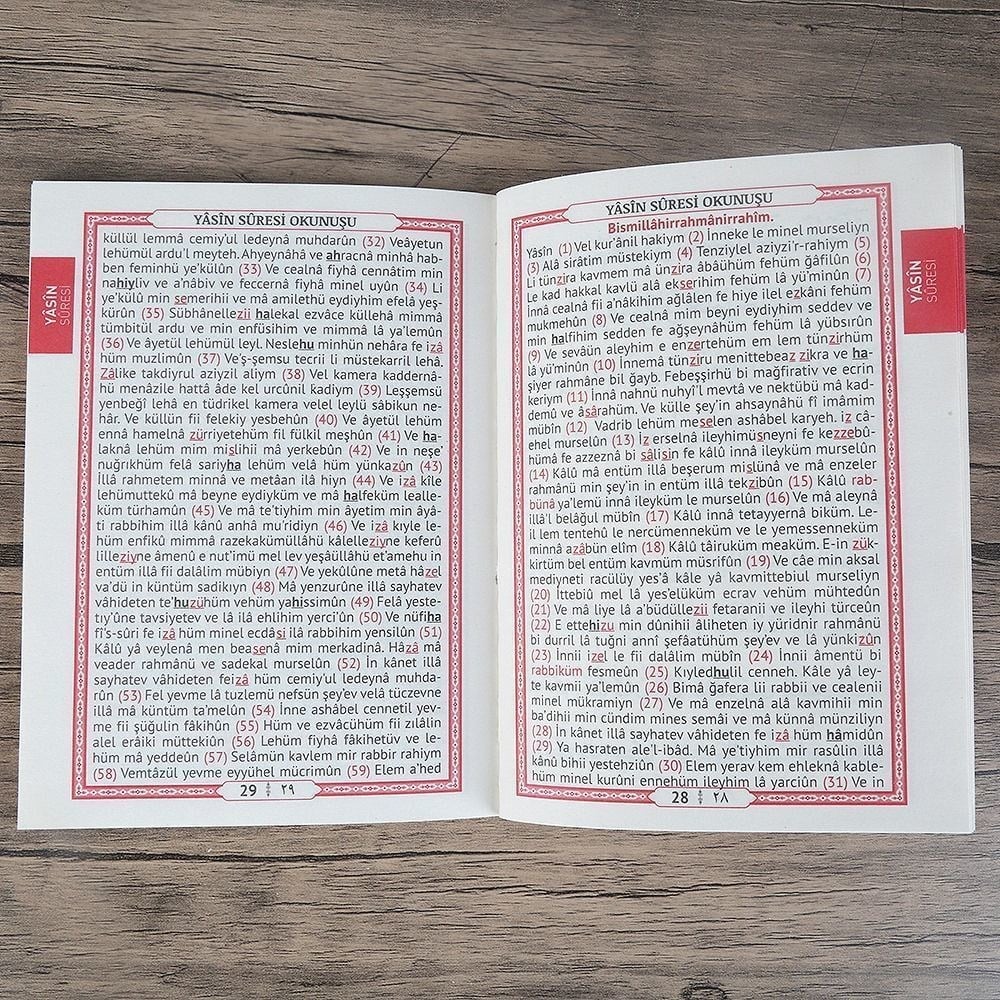 YÂSÎN SÛRESİ OKUNUŞU
Bismillâhirrahmânirrahîm.
Yâsîn (1) Vel kur'ânil hakiym (2) İnneke le minel murseliyn
(3) Alâ sirâtim müstekiym (4) Tenziylel aziyzi'r-rahiym (5)
Li tünzira kavmem mâ ünzira âbâühüm fehüm ğafilûn (6)
Le kad hakkal kavlü alâ ekserihim fehüm lâ yü'minûn (7)
İnnâ cealnâ fii a'nâkihim ağlâlen fe hiye ilel ezkâni fehüm
mukmehûn (8) Ve cealnâ mim beyni eydiyhim seddev ve
min halfihim sedden fe ağşeynâhüm fehüm lâ yübsırûn
(9) Ve sevâün aleyhim e enzertehüm em lem tünzirhüm
lâ yü'minûn (10) İnnemâ tünziru menittebeaz zikra ve ha-
şiyer rahmâne bil ğayb. Febeşşirhü bi mağfirativ ve ecrin
keriym (11) İnnâ nahnü nuhyi'l mevtâ ve nektübü mâ kad-
demû ve âsârahüm. Ve külle şey'in ahsaynâhü fî imâmim
mübîn (12) Vadrib lehüm meselen ashâbel karyeh. iz câ-
ehel murselûn (13) İz erselnâ ileyhimüsneyni fe kezzebû-
hümâ fe azzeznâ bi sâlisin fe kâlû innâ ileyküm murselûn
(14) Kâlû mâ entüm illâ beşerum mislünâ ve mâ enzeler
rahmânü min şey'in in entüm illâ tekzibûn (15) Kâlû rab-
bünâ ya'lemü innâ ileyküm le murselûn (16) Ve mâ aleynâ
illâ'l belâğul mübîn (17) Kâlû innâ tetayyernâ biküm. Le-
il lem tentehû le nercümenneküm ve le yemessenneküm
minnâ azâbün elîm (18) Kâlû tâiruküm meaküm. E-in zük-
kirtüm bel entüm kavmüm müsrifûn (19) Ve câe min aksal
mediyneti racülüy yes'â kâle yâ kavmittebiul murseliyn
(20) İttebiû mel lâ yes'elüküm ecrav vehüm mühtedûn
(21) Ve mâ liye lâ a'büdüllezii fetaranii ve ileyhi türceûn
(22) E ettehizu min dûnihii âliheten iy yüridnir rahmânü
bi durril lâ tuğni annî şefaâtühüm şey'ev ve lâ yünkizûn
(23) İnnii izel le fii dalâlim mübîn (24) İnnii âmentü bi
rabbiküm fesmeûn (25) Kıyledhulil cenneh. Kâle yâ ley-
te kavmii ya'lemûn (26) Bimâ ğafera lii rabbii ve cealenii
minel mükramiyn (27) Ve mâ enzelnâ alâ kavmihii min
ba'dihii min cündim mines semâi ve mâ künnâ münziliyn
(28) İn kânet illâ sayhatev vâhideten fe izâ hüm hâmidûn
(29) Ya hasraten ale'l-ibâd. Mâ ye'tiyhim mir rasûlin illâ
kânû bihii yestehziûn (30) Elem yerav kem ehleknâ kable-
hüm minel kurûni ennehüm ileyhim lâ yarciûn (31) Ve in
28 ٢٨
YÂSÎN
SÛRESİ
YÂSÎN SÛRESİ OKUNUŞU
küllül lemmâ cemiy'ul ledeynâ muhdarûn (32) Veâyetun
lehümül ardu'l meyteh. Ahyeynâhâ ve ahracnâ minhâ hab-
ben feminhü ye'külûn (33) Ve cealnâ fiyhâ cennâtim min
nahiyliv ve a'nâbiv ve feccernâ fiyhâ minel uyûn (34) Li
ye'külû min semerihii ve mâ amilethü eydiyhim efelâ yeş-
kürûn (35) Sübhânellezii halekal ezvâce küllehâ mimmâ
tümbitül ardu ve min enfüsihim ve mimmâ lâ ya'lemûn
(36) Ve âyetül lehümül leyl. Neslehu minhün nehâra fe izâ
hüm muzlimûn (37) Ve'ş-şemsu tecrii li müstekarril lehâ.
Zâlike takdiyrul aziyzil aliym (38) Vel kamera kaddernâ-
hü menâzile hattâ âde kel urcûnil kadiym (39) Leşşemsü
yenbeğî lehâ en tüdrikel kamera velel leylü sâbikun ne-
hâr. Ve küllün fii felekiy yesbehûn (40) Ve âyetül lehüm
ennâ hamelnâ zürriyetehüm fil fülkil meşhûn (41) Ve ha-
laknâ lehüm mim mislihii mâ yerkebûn (42) Ve in neşe'
nuğrıkhüm felâ sariyha lehüm velâ hüm yünkazûn (43)
İllâ rahmetem minnâ ve metâan ilâ hiyn (44) Ve izâ kîle
lehümuttekû mâ beyne eydiyküm ve mâ halfeküm lealle-
küm türhamûn (45) Ve mâ te'tiyhim min âyetim min âyâ-
ti rabbihim illâ kânû anhâ mu'ridiyn (46) Ve izâ kıyle le-
hüm enfikû mimmâ razekakümüllâhü kâlelleziyne keferû
lilleziyne âmenû e nut'imü mel lev yeşâüllâhü et'amehu in
entüm illâ fii dalâlim mübiyn (47) Ve yekûlûne metâ hâzel
va'dü in küntüm sadikıyn (48) Mâ yenzurûne illâ sayhatev
vâhideten te'huzühüm vehüm yahissimûn (49) Felâ yeste-
tıy'ûne tavsiyetev ve lâ ilâ ehlihim yerci'ûn (50) Ve nüfiha
fi's-sûri fe izâ hüm minel ecdâsi ilâ rabbihim yensilûn (51)
Kâlû yâ veylenâ men beasenâ mim merkadinâ. Hâzâ mâ
veader rahmânü ve sadekal murselûn (52) İn kânet illâ
sayhatev vâhideten feizâ hüm cemiy'ul ledeynâ muhda-
rûn (53) Fel yevme lâ tuzlemü nefsün şey'ev velâ tüczevne
illâ mâ küntüm ta'melûn (54) İnne ashâbel cennetil yev-
me fii şüğulin fâkihûn (55) Hüm ve ezvâcühüm fii zılâlin
alel erâiki müttekiûn (56) Lehüm fiyhâ fâkihetüv ve le-
hüm mâ yeddeûn (57) Selâmün kavlem mir rabbir rahiym
(58) Vemtâzül yevme eyyühel mücrimûn (59) Elem a'hed
29 ٢٩
YÂSÎN
SÛRESİ